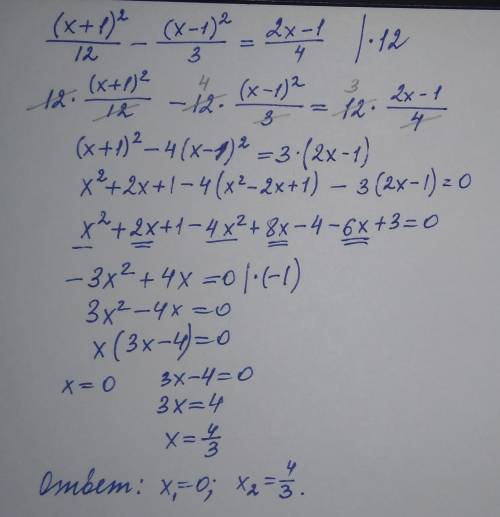 (x+1)²/12 − (x−1)²/3 = (2x−1)/4 |·12
12 · (x+1)²/12 − 12⁴ · (x−1)²/3 = 12³ · (2x−1)/4
(x+1)² − 4(x−1)² = 3·(2x−1)
x² + 2x + 1 − 4(x² − 2x + 1) − 3(2x−1) = 0
x² + 2x + 1 − 4x² + 8x − 4 − 6x + 3 = 0
−3x² + 4x = 0 |·(−1)
3x² − 4x = 0
x(3x−4) = 0
x = 0 3x−4 = 0
3x = 4
x = 4/3
Ответ: x₁ = 0; x₂ = 4/3.